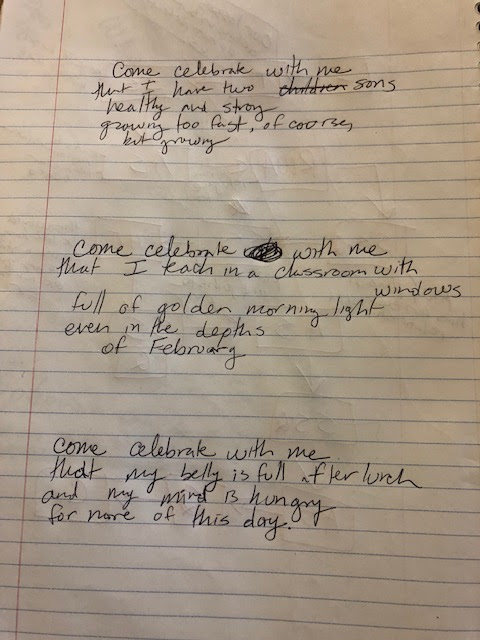 Come celebrate with me
that I have two children sons
healthy and strong
growing too fast, of course,
but growing
Come celebrate with me
that I teach in a classroom with
windows
full of golden morning light
even in the depths
of February
Come celebrate with me
that my belly is full after lunch
and my mind is hungry
for more of this day.